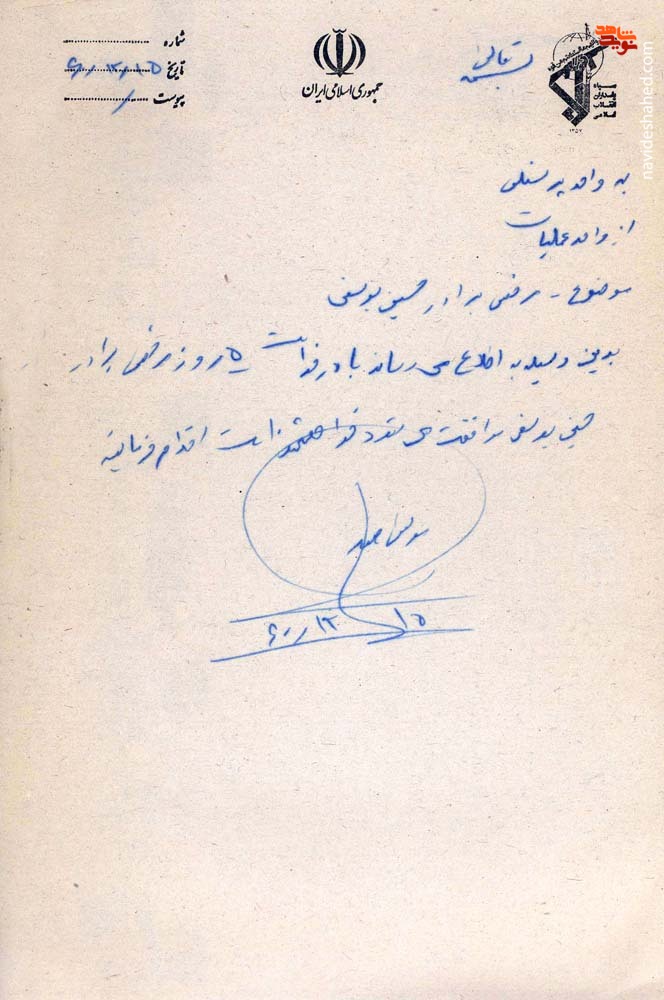 بسمه تعالی
جمهوری اسلامی ایران
سپاه پاسداران انقلاب اسلامی
۱۳۵۷
نوید شاهد
navideshahed.com
شماره
تاریخ ۶۰/۱۲/۱۵
پیوست
به واحد پرسنلی
از واحد عملیات
موضوع - مرخصی برادر حسین یوسفی
بدین وسیله به اطلاع می رساند با درخواست ۵ روز مرخصی برادر
حسین یوسفی موافقت می شود اقدام فرمائید
۶۰/۱۲/۱۵